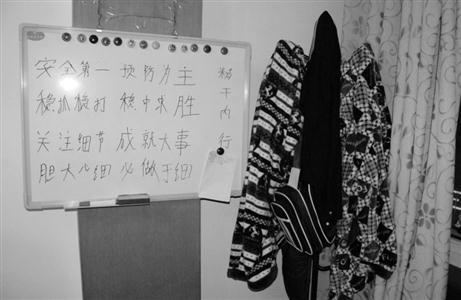 安全第一 预防为主
稳抓稳打 稳中求胜
关注细节 成就大事
胆大心细 必做于细
内行